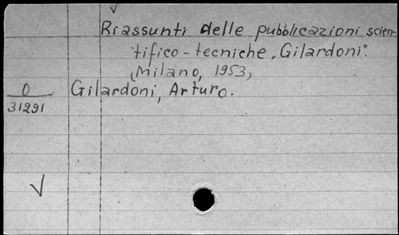 Riassunti delle pubblicazioni scien-
tifico-tecniche „Gilardoni".
(Milano, 1953)
O
31291
Gilardoni, Arturo.